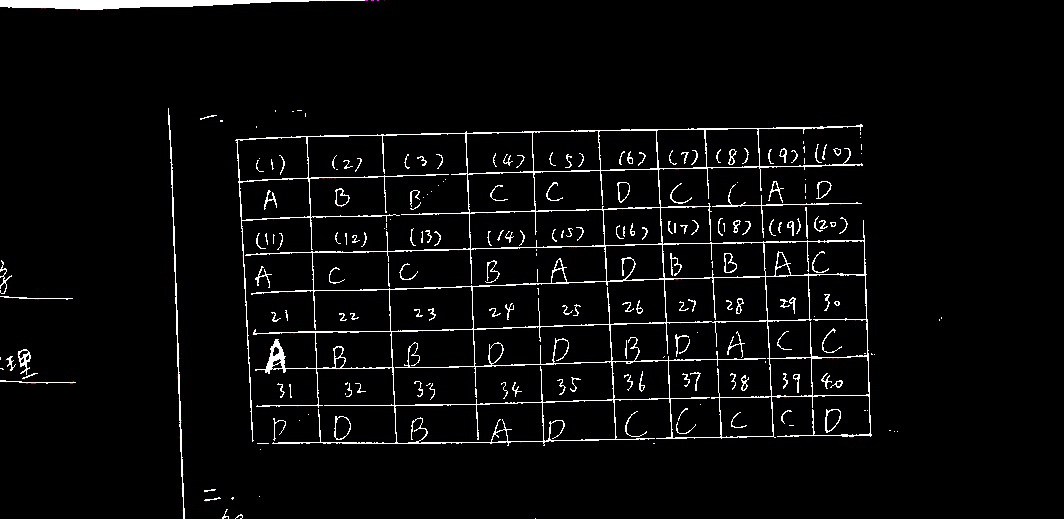 一.
(1) (2) (3) (4) (5) (6) (7) (8) (9) (10)
A B B C C D C C A D
(11) (12) (13) (14) (15) (16) (17) (18) (19) (20)
A C C B A D B B A C
21 22 23 24 25 26 27 28 29 30
A B B D D B D A C C
31 32 33 34 35 36 37 38 39 40
D D B A D C C C C D
理
二.